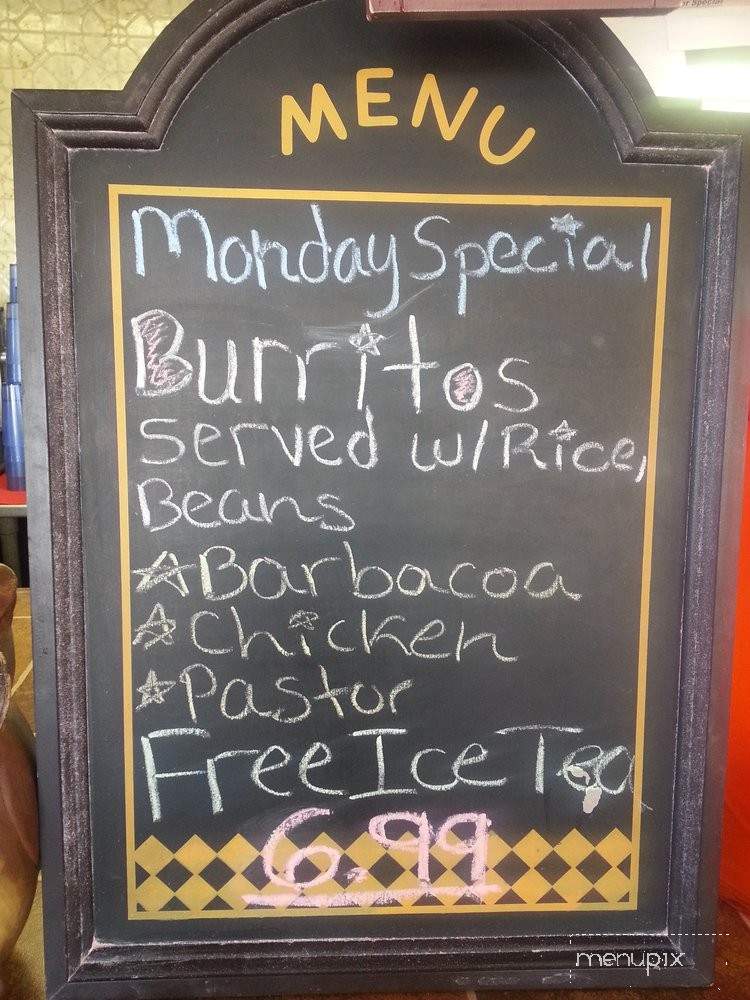 or Special
MENU
Monday Special
Burritos
Served w/Rice,
Beans
☆Barbacoa
☆Chicken
☆Pastor
Free Ice Tea
6.99
menupix